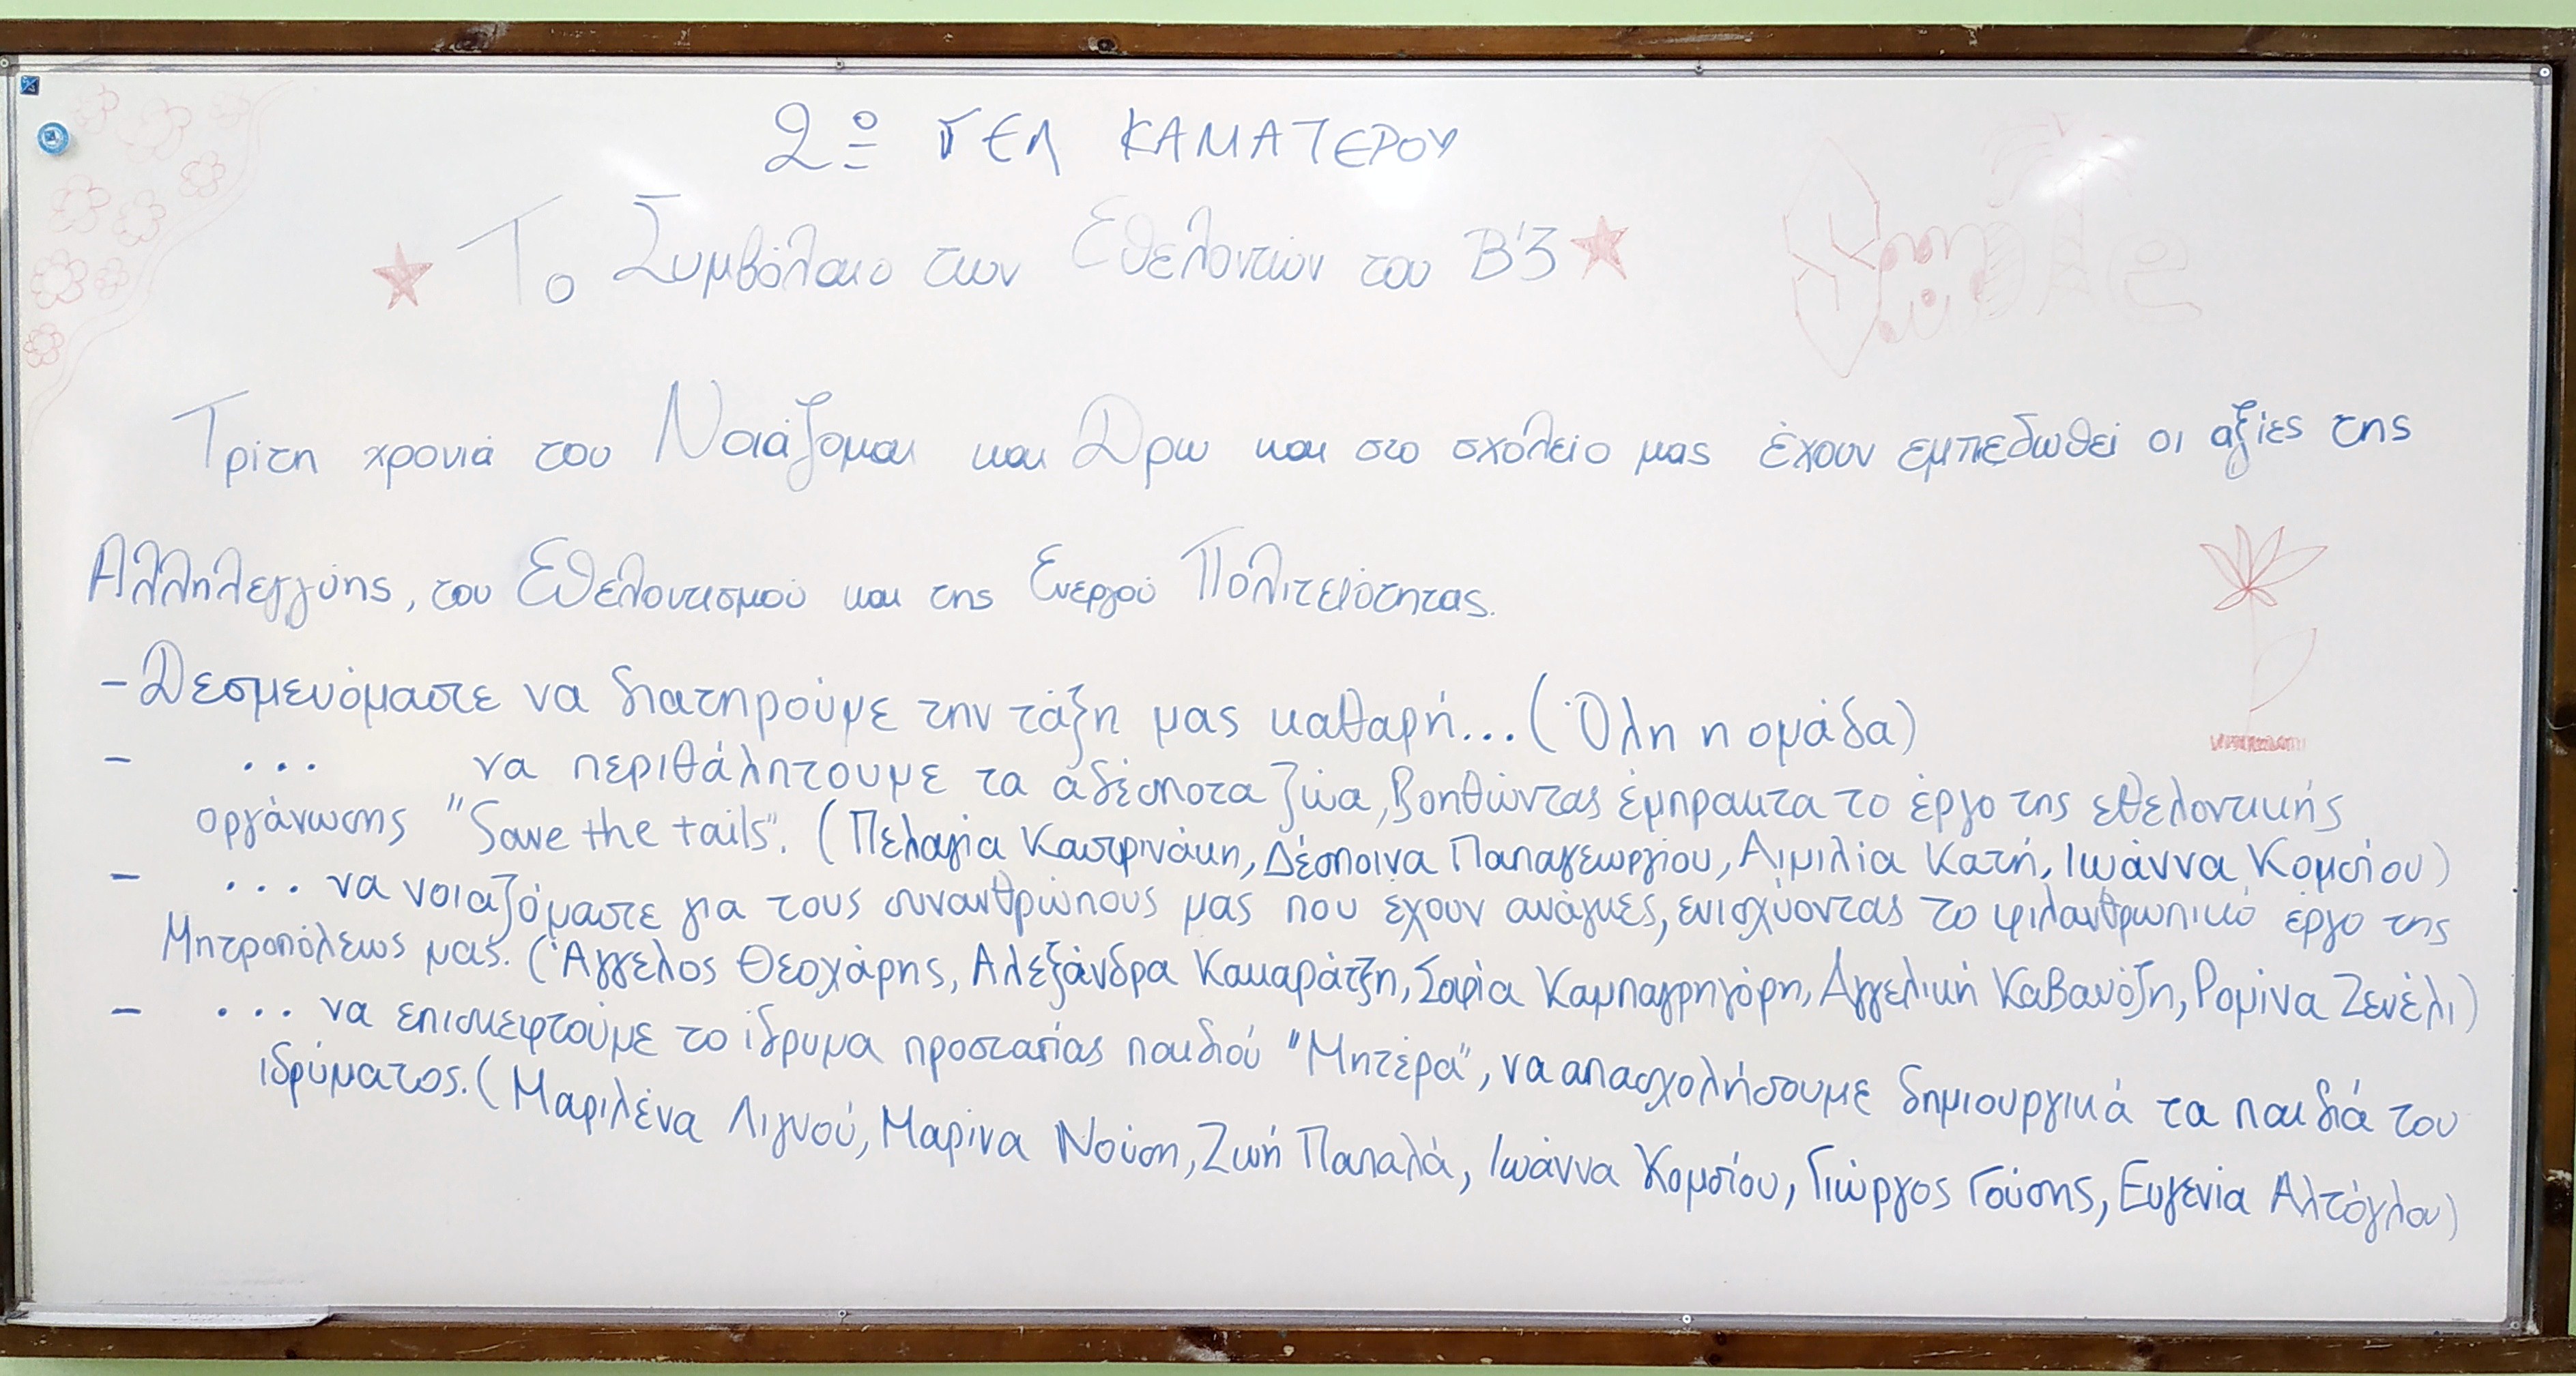 2ο ΓΕΛ ΚΑΜΑΤΕΡΟΥ
Το Συμβόλαιο των Εθελοντών του Β'3
Smile
Τρίτη χρονιά του Νοιάζομαι και Δρω και στο σχολείο μας έχουν εμπεδωθεί οι αξίες της
Αλληλεγγύης, του Εθελοντισμού και της Ενεργού Πολιτειότητας.
- Δεσμευόμαστε να διατηρούμε την τάξη μας καθαρή... (Όλη η ομάδα)
- ... να περιθάλπτουμε τα αδέσποτα ζώα, βοηθώντας έμπρακτα το έργο της εθελοντικής
οργάνωσης "Save the tails". (Πελαγία Καστρινάκη, Δέσποινα Παπαγεωργίου, Αιμιλία Κατή, Ιωάννα Κομσίου)
- ... να νοιαζόμαστε για τους συνανθρώπους μας που έχουν ανάγκες, ενισχύοντας το φιλανθρωπικό έργο της
Μητροπόλεως μας. (Άγγελος Θεοχάρης, Αλεξάνδρα Κακαράτζη, Σοφία Καμπαγρηγόρη, Αγγελική Καβανόζη, Ρομίνα Ζενέλι)
- ... να επισκεφτούμε το ίδρυμα προστασίας παιδιού "Μητέρα", να απασχολήσουμε δημιουργικά τα παιδιά του
ιδρύματος. (Μαριλένα Λιγνού, Μαρίνα Νούση, Ζωή Παπαλά, Ιωάννα Κομσίου, Γιώργος Γούσης, Ευγενία Αλτόγλου)